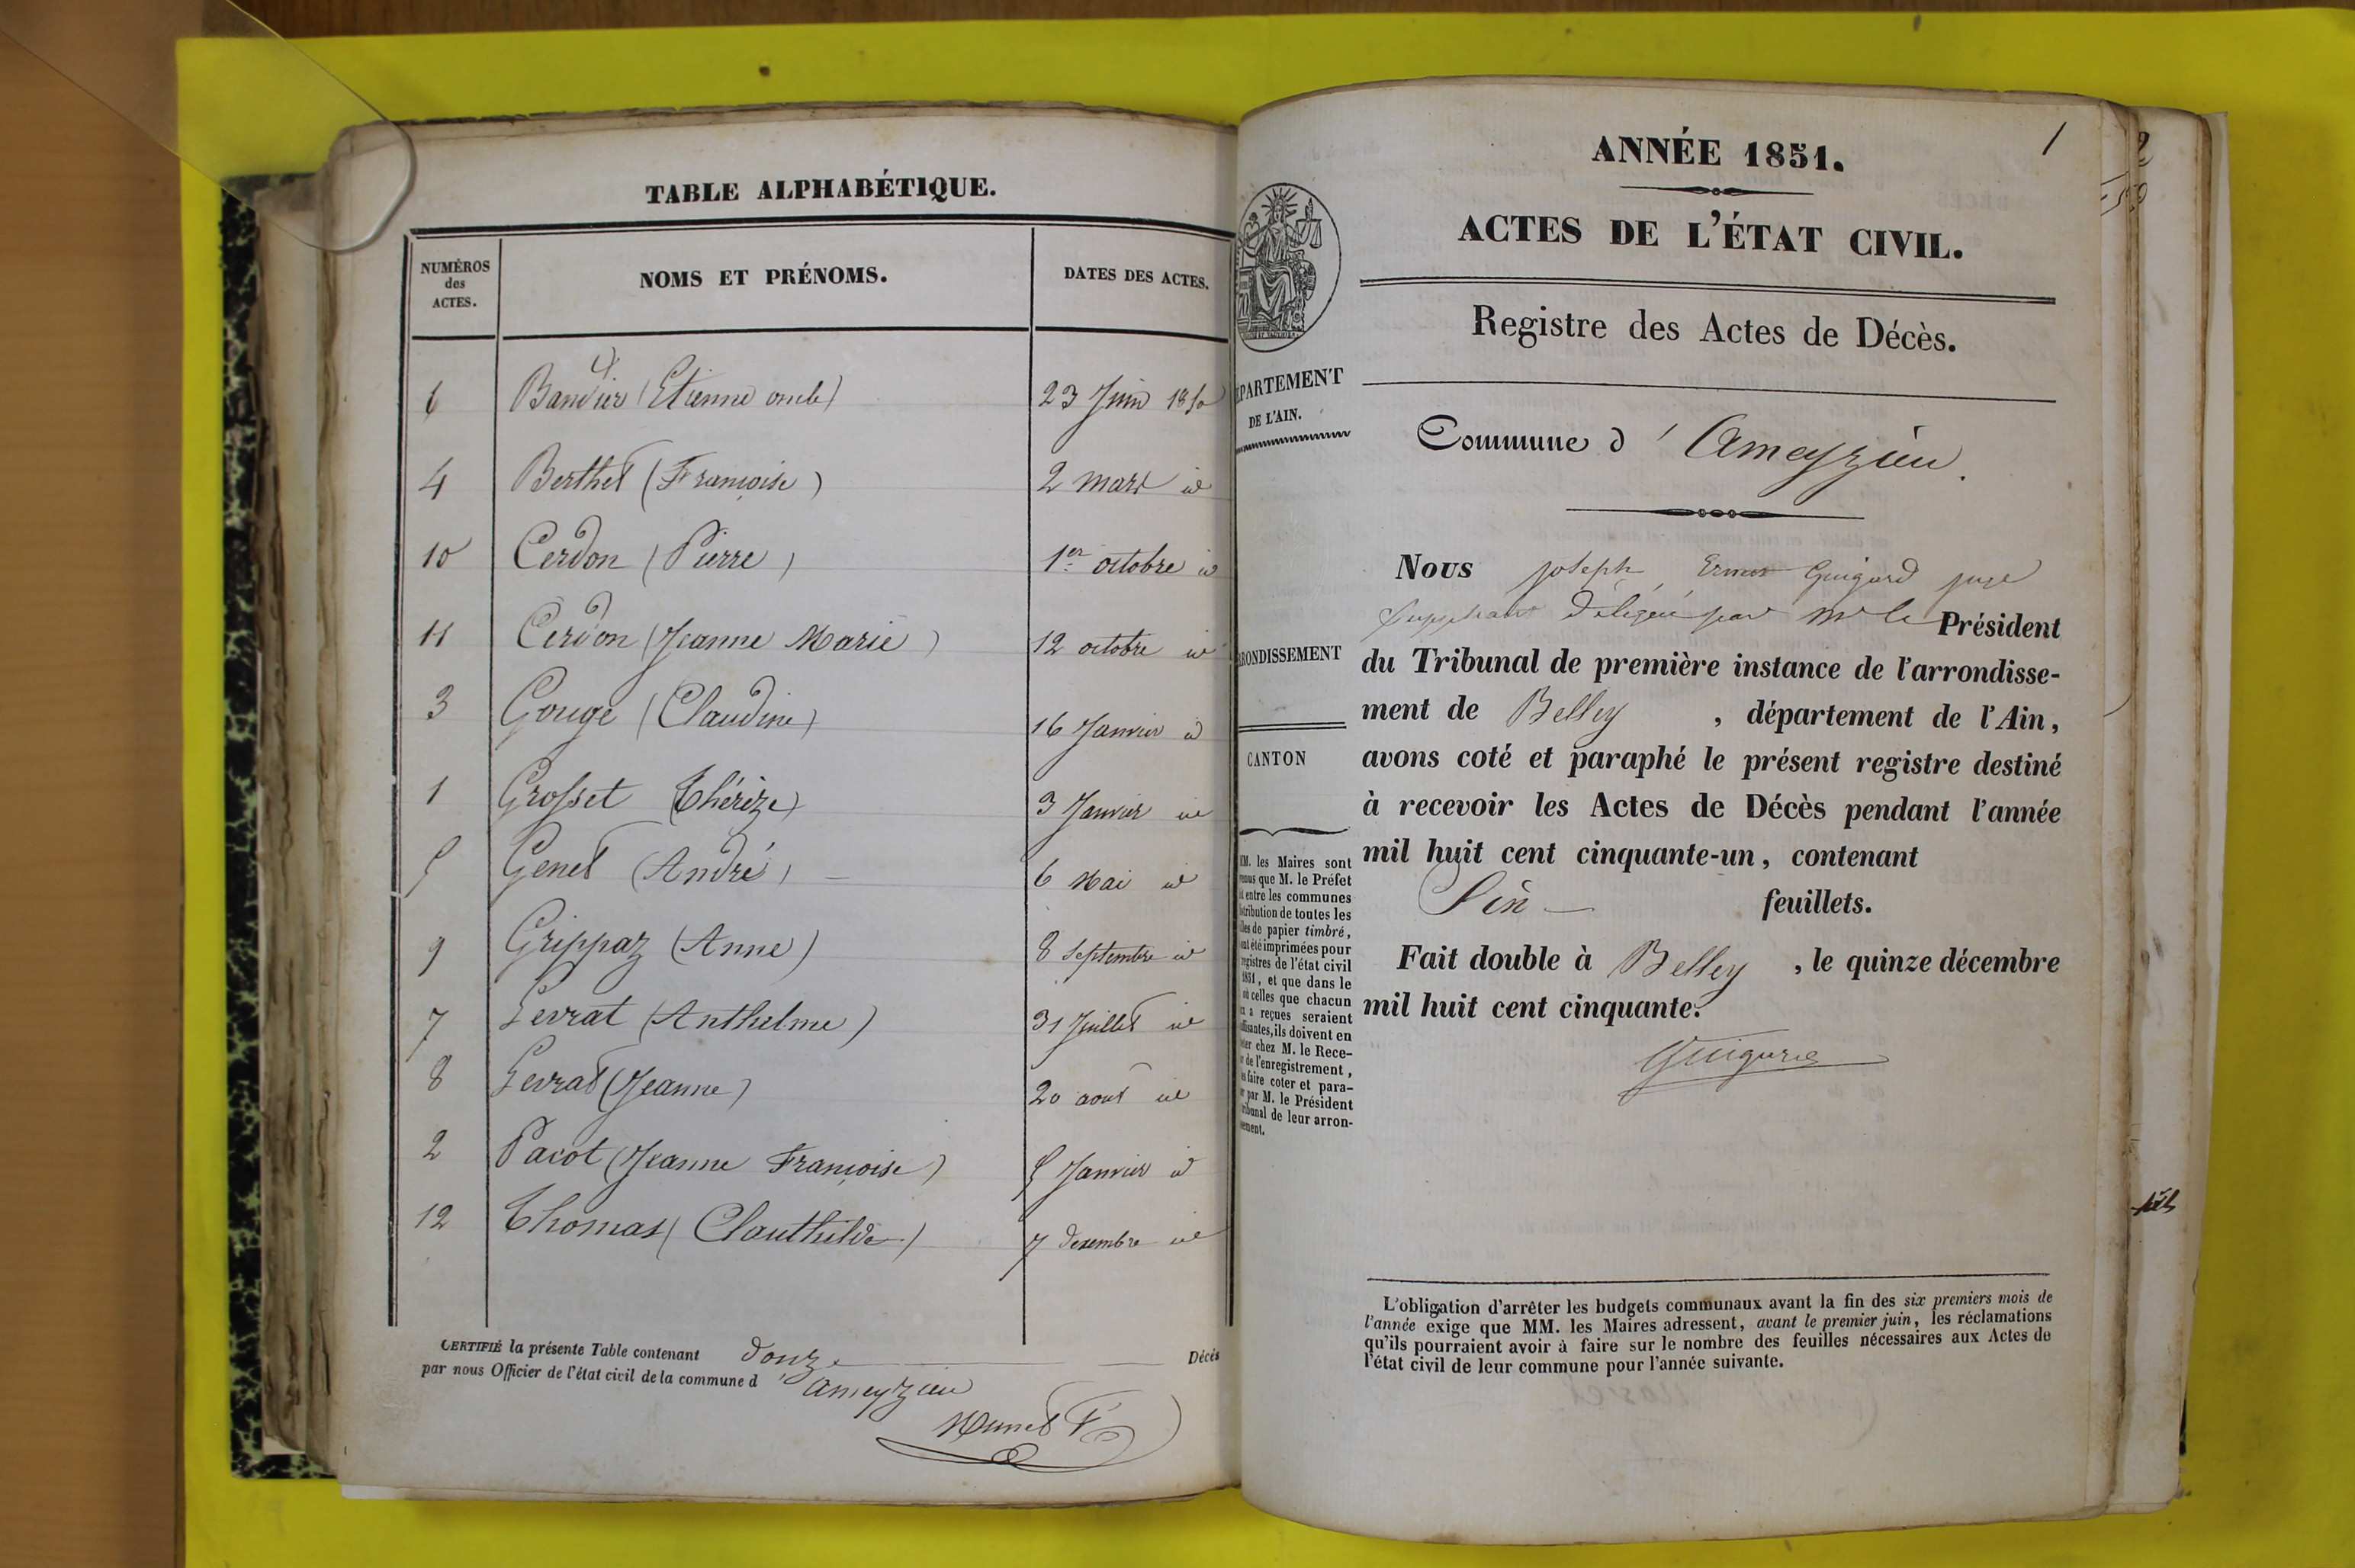 TABLE ALPHABÉTIQUE.
NUMÉROS des ACTES.
NOMS ET PRÉNOMS.
DATES DES ACTES.
6 (Etienne 23 Juin 1850
4 Berthet (Françoise) 2 mars id
10 Cerdon (Pierre) 1er octobre id
11 Cerdon (Jeanne Marie) 12 octobre id
3 Gouge (Claudine) 16 Janvier id
1 Grosset (Thérèze) 3 Janvier id
5 Genet (André) 6 Mai id
9 Grippaz (Anne) 8 Septembre id
7 Levrat (Anthelme) 31 Juillet id
8 Levrat (Jeanne) 20 aout id
2 Pacot (Jeanne Françoise) 5 Janvier id
12 Thomas (Clauthilde) 7 decembre id
CERTIFIÉ la présente Table contenant douze Décès
par nous Officier de l'état civil de la commune d ameyzieu
1
ANNÉE 1851.
ACTES DE L'ÉTAT CIVIL.
Registre des Actes de Décès.
DÉPARTEMENT
DE L'AIN.
Commune d' Ameyzieu.
Nous joseph Guigard juge
suppléant délégué par Mr le Président
ARRONDISSEMENT
du Tribunal de première instance de l'arrondisse-
ment de Belley, département de l'Ain,
CANTON
avons coté et paraphé le présent registre destiné
à recevoir les Actes de Décès pendant l'année
mil huit cent cinquante-un, contenant
feuillets.
Fait double à Belley, le quinze décembre
mil huit cent cinquante.
MM. les Maires sont
que M. le Préfet
entre les communes
de toutes les
de papier timbré,
été imprimées pour
registres de l'état civil
1851, et que dans le
celles que chacun
a reçues seraient
ils doivent en
chez M. le Rece-
de l'enregistrement,
faire coter et para-
par M. le Président
de leur arron-
L'obligation d'arrêter les budgets communaux avant la fin des six premiers mois de
l'année exige que MM. les Maires adressent, avant le premier juin, les réclamations
qu'ils pourraient avoir à faire sur le nombre des feuilles nécessaires aux Actes de
l'état civil de leur commune pour l'année suivante.